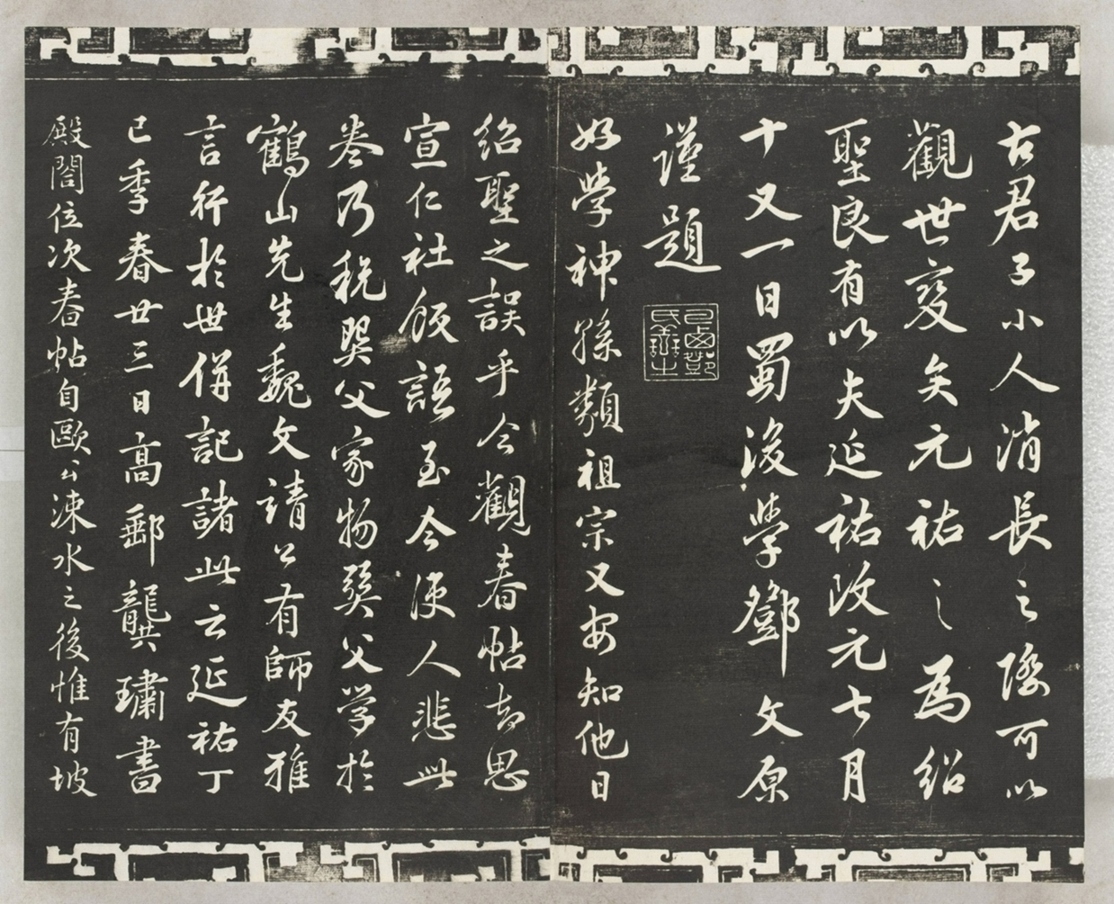 古君子小人消長之際可以
觀世變矣元祐之為紹
聖良有以夫延祐改元七月
十又一日蜀後學鄧文原
謹題
巴西鄧氏善之
好學神孫類祖宗又安知他日
紹聖之誤乎今觀春帖知思
宣仁社飯語至今使人悲此
卷乃稅巽父家物巽父学於
鶴山先生魏文請公有師友雅
言行於世併記諸此云延祐丁
巳季春廿三日高郵龔璛書
殿閣位次春帖自歐公涑水之後惟有坡